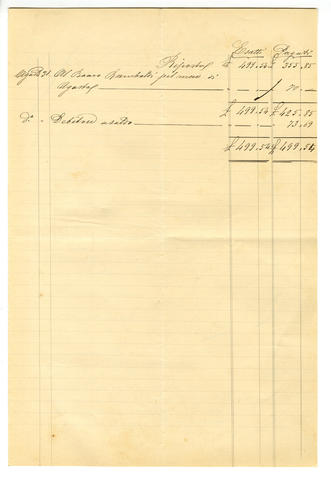 Esatti Pagati
Riporto £ 499.54 £ 355.85
Agosto 31. Al Bravo Rambaldi pel mese di
Agosto — . — 70. —
£ 499.54 £ 425.85
Dº. " Debitore a saldo — . — 73.69
£ 499.54 £ 499.54